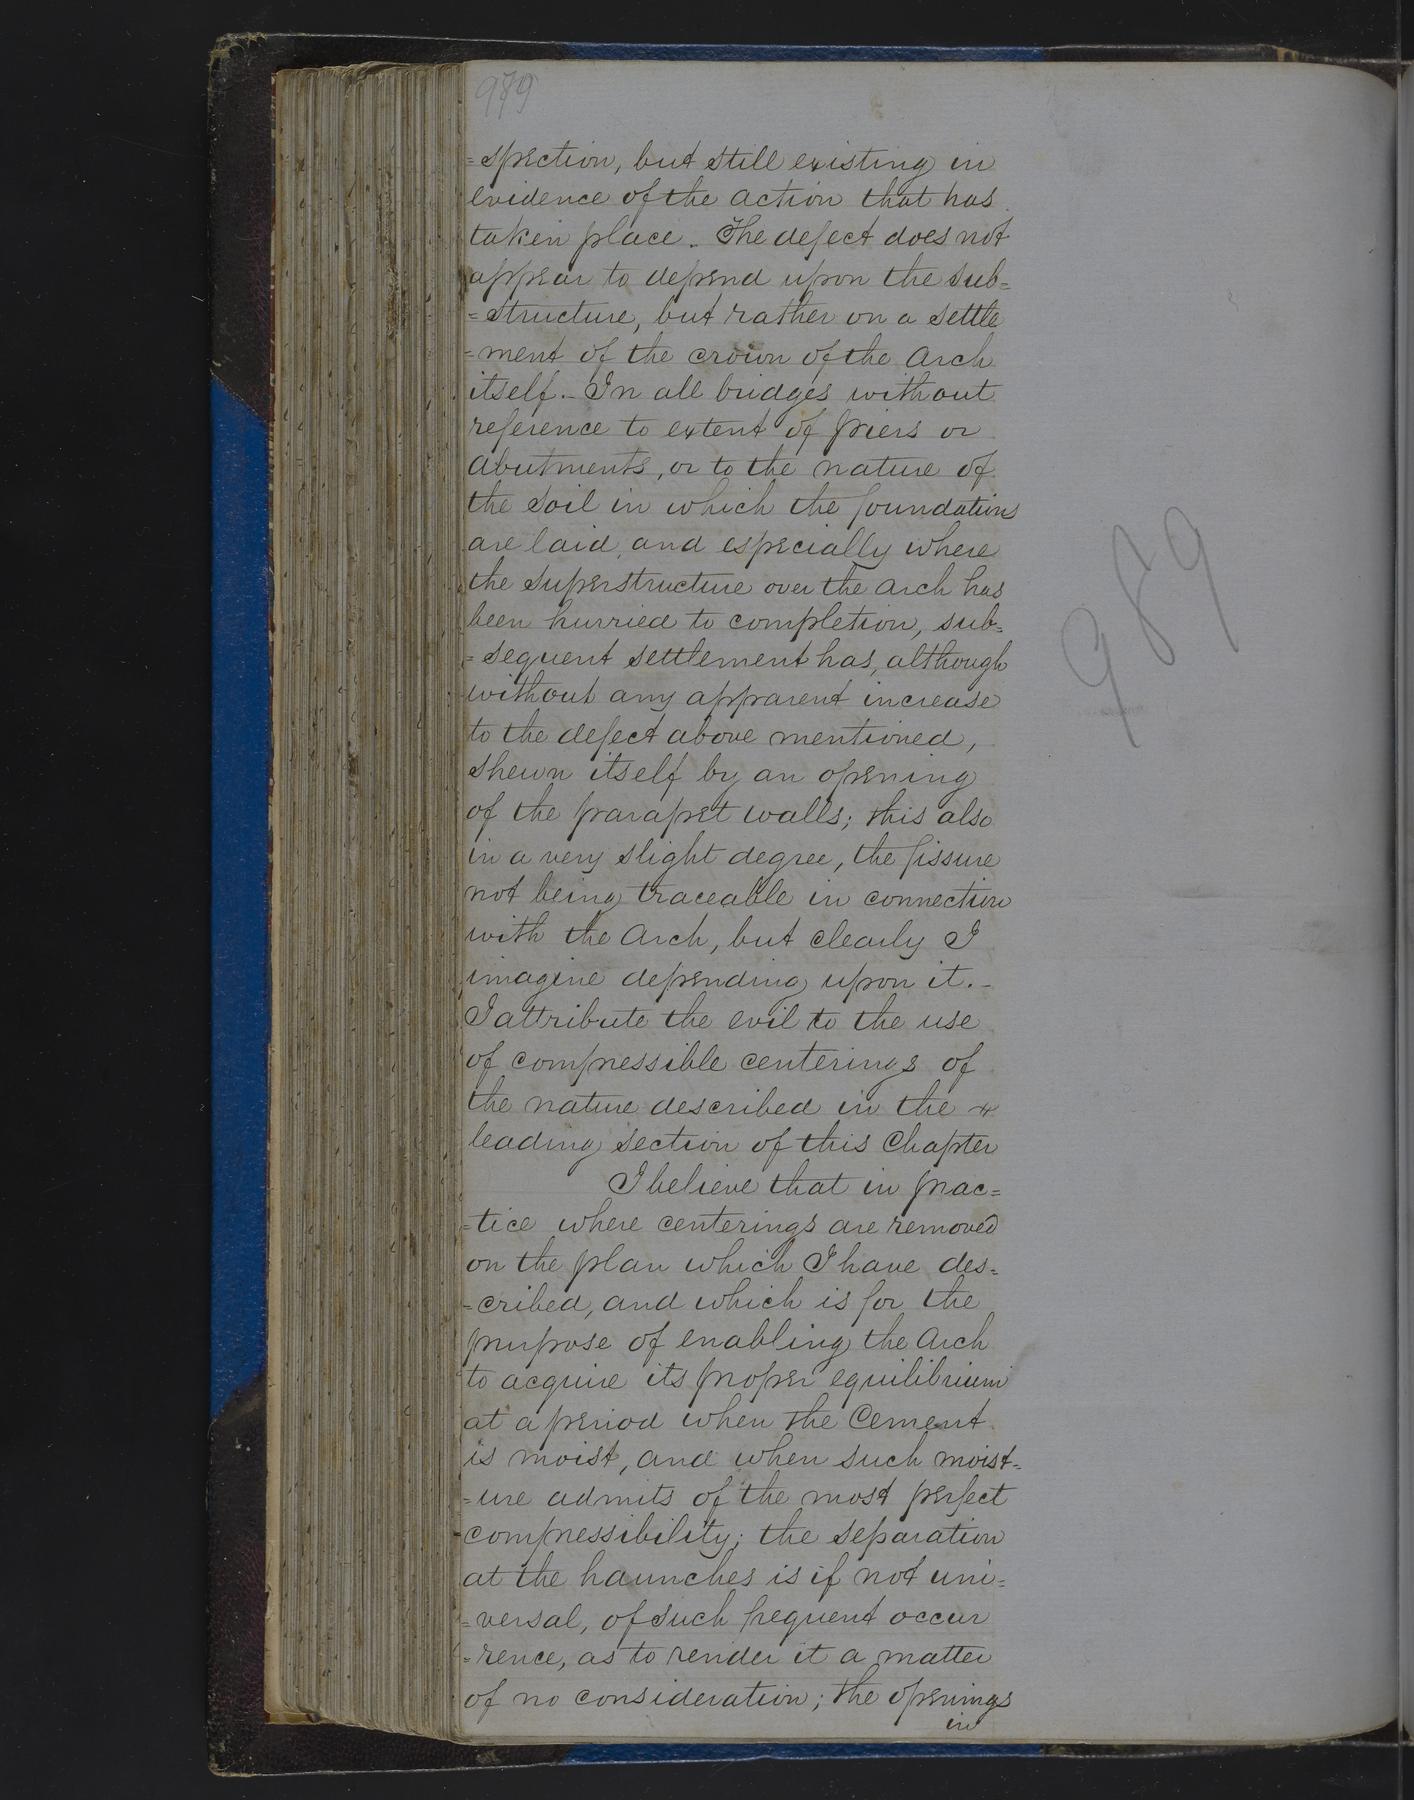 979
=spection, but still existing in
evidence of the action that has
taken place. The defect does not
appear to depend upon the sub=
=structure, but rather on a settle
=ment of the crown of the Arch
itself.- In all bridges without
reference to extent of piers or
abutments, or to the nature of
the soil in which the foundations
are laid, and especially where
the superstructure over the arch has
been hurried to completion, sub=
=sequent settlement has, although
without any apparent increase
to the defect above mentioned,
shewn itself by an opening
of the parapet walls; this also
in a very slight degree, the fissure
not being traceable in connection
with the Arch, but clearly I
imagine depending upon it.-
I attribute the evil to the use
of compressible centerings of
the nature described in the
leading section of this Chapter
I believe that in prac=
=tice where centerings are removed
on the plan which I have des=
=cribed, and which is for the
purpose of enabling the Arch
to acquire its proper equilibrium
at a period when the Cement
is moist, and when such moist=
=ure admits of the most perfect
compressibility; the separation
at the haunches is if not uni=
=versal, of such frequent occur
=rence, as to render it a matter
of no consideration; the openings
in
989